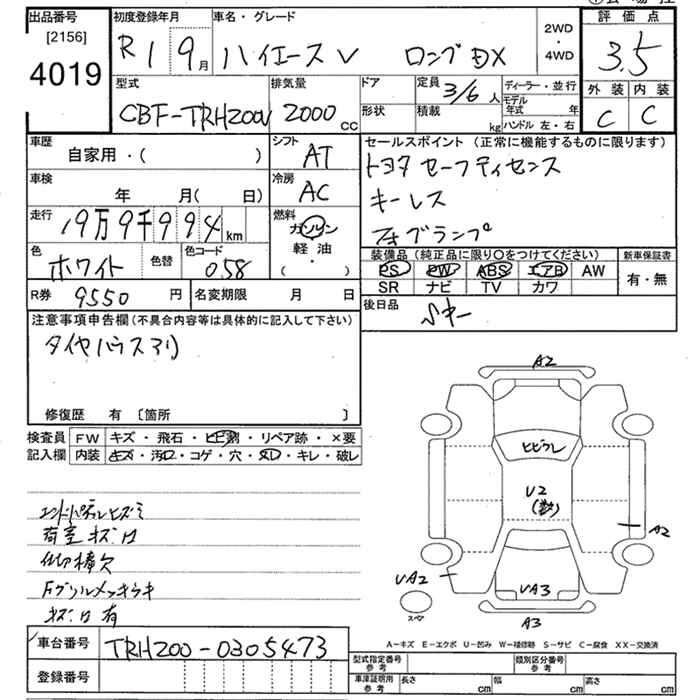 出品番号
[2156]
4019
初度登録年月
R1 9月
車名・グレード
ハイエースV ロングDX
2WD
・
4WD
評価点
3.5
外装 内装
C C
型式
CBF-TRH200V
排気量
2000cc
ドア
形状
定員
3/6人
積載
kg
ディーラー・並行
モデル年式 年
ハンドル 左・右
車歴
自家用・( )
シフト
AT
車検
年 月( 日)
冷房
AC
走行
19万9千994km
燃料
ガソリン
軽油
( ・ )
色
ホワイト
色替
色コード
058
R券 9550円
名変期限 月 日
セールスポイント(正常に機能するものに限ります)
トヨタセーフティセンス
キーレス
フォグランプ
装備品(純正品に限り○をつけてください)
新車保証書
PS PW ABS エアB AW
SR ナビ TV カワ
有・無
後日品
Sキー
注意事項申告欄(不具合内容等は具体的に記入して下さい)
タイヤハウススリ
修復歴 有 〔箇所 〕
検査員
記入欄
FW キズ・飛石・ヒビ割・リペア跡・×要
内装 キズ・汚レ・コゲ・穴・スレ・キレ・破レ
エンドパネルヒズミ
荷室キズ凹
Fグリルメッキウキ
キズ凹有
A2
ヒビワレ
U2
A2
UA2
UA3
A3
スペア
A-キズ E-エクボ U-凹み W-補修跡 S-サビ C-腐食 XX-交換済
車台番号 TRH200-0305473
登録番号
型式指定番号
参考
類別区分番号
参考
車庫証明用
参考
長さ cm 幅 cm 高さ cm